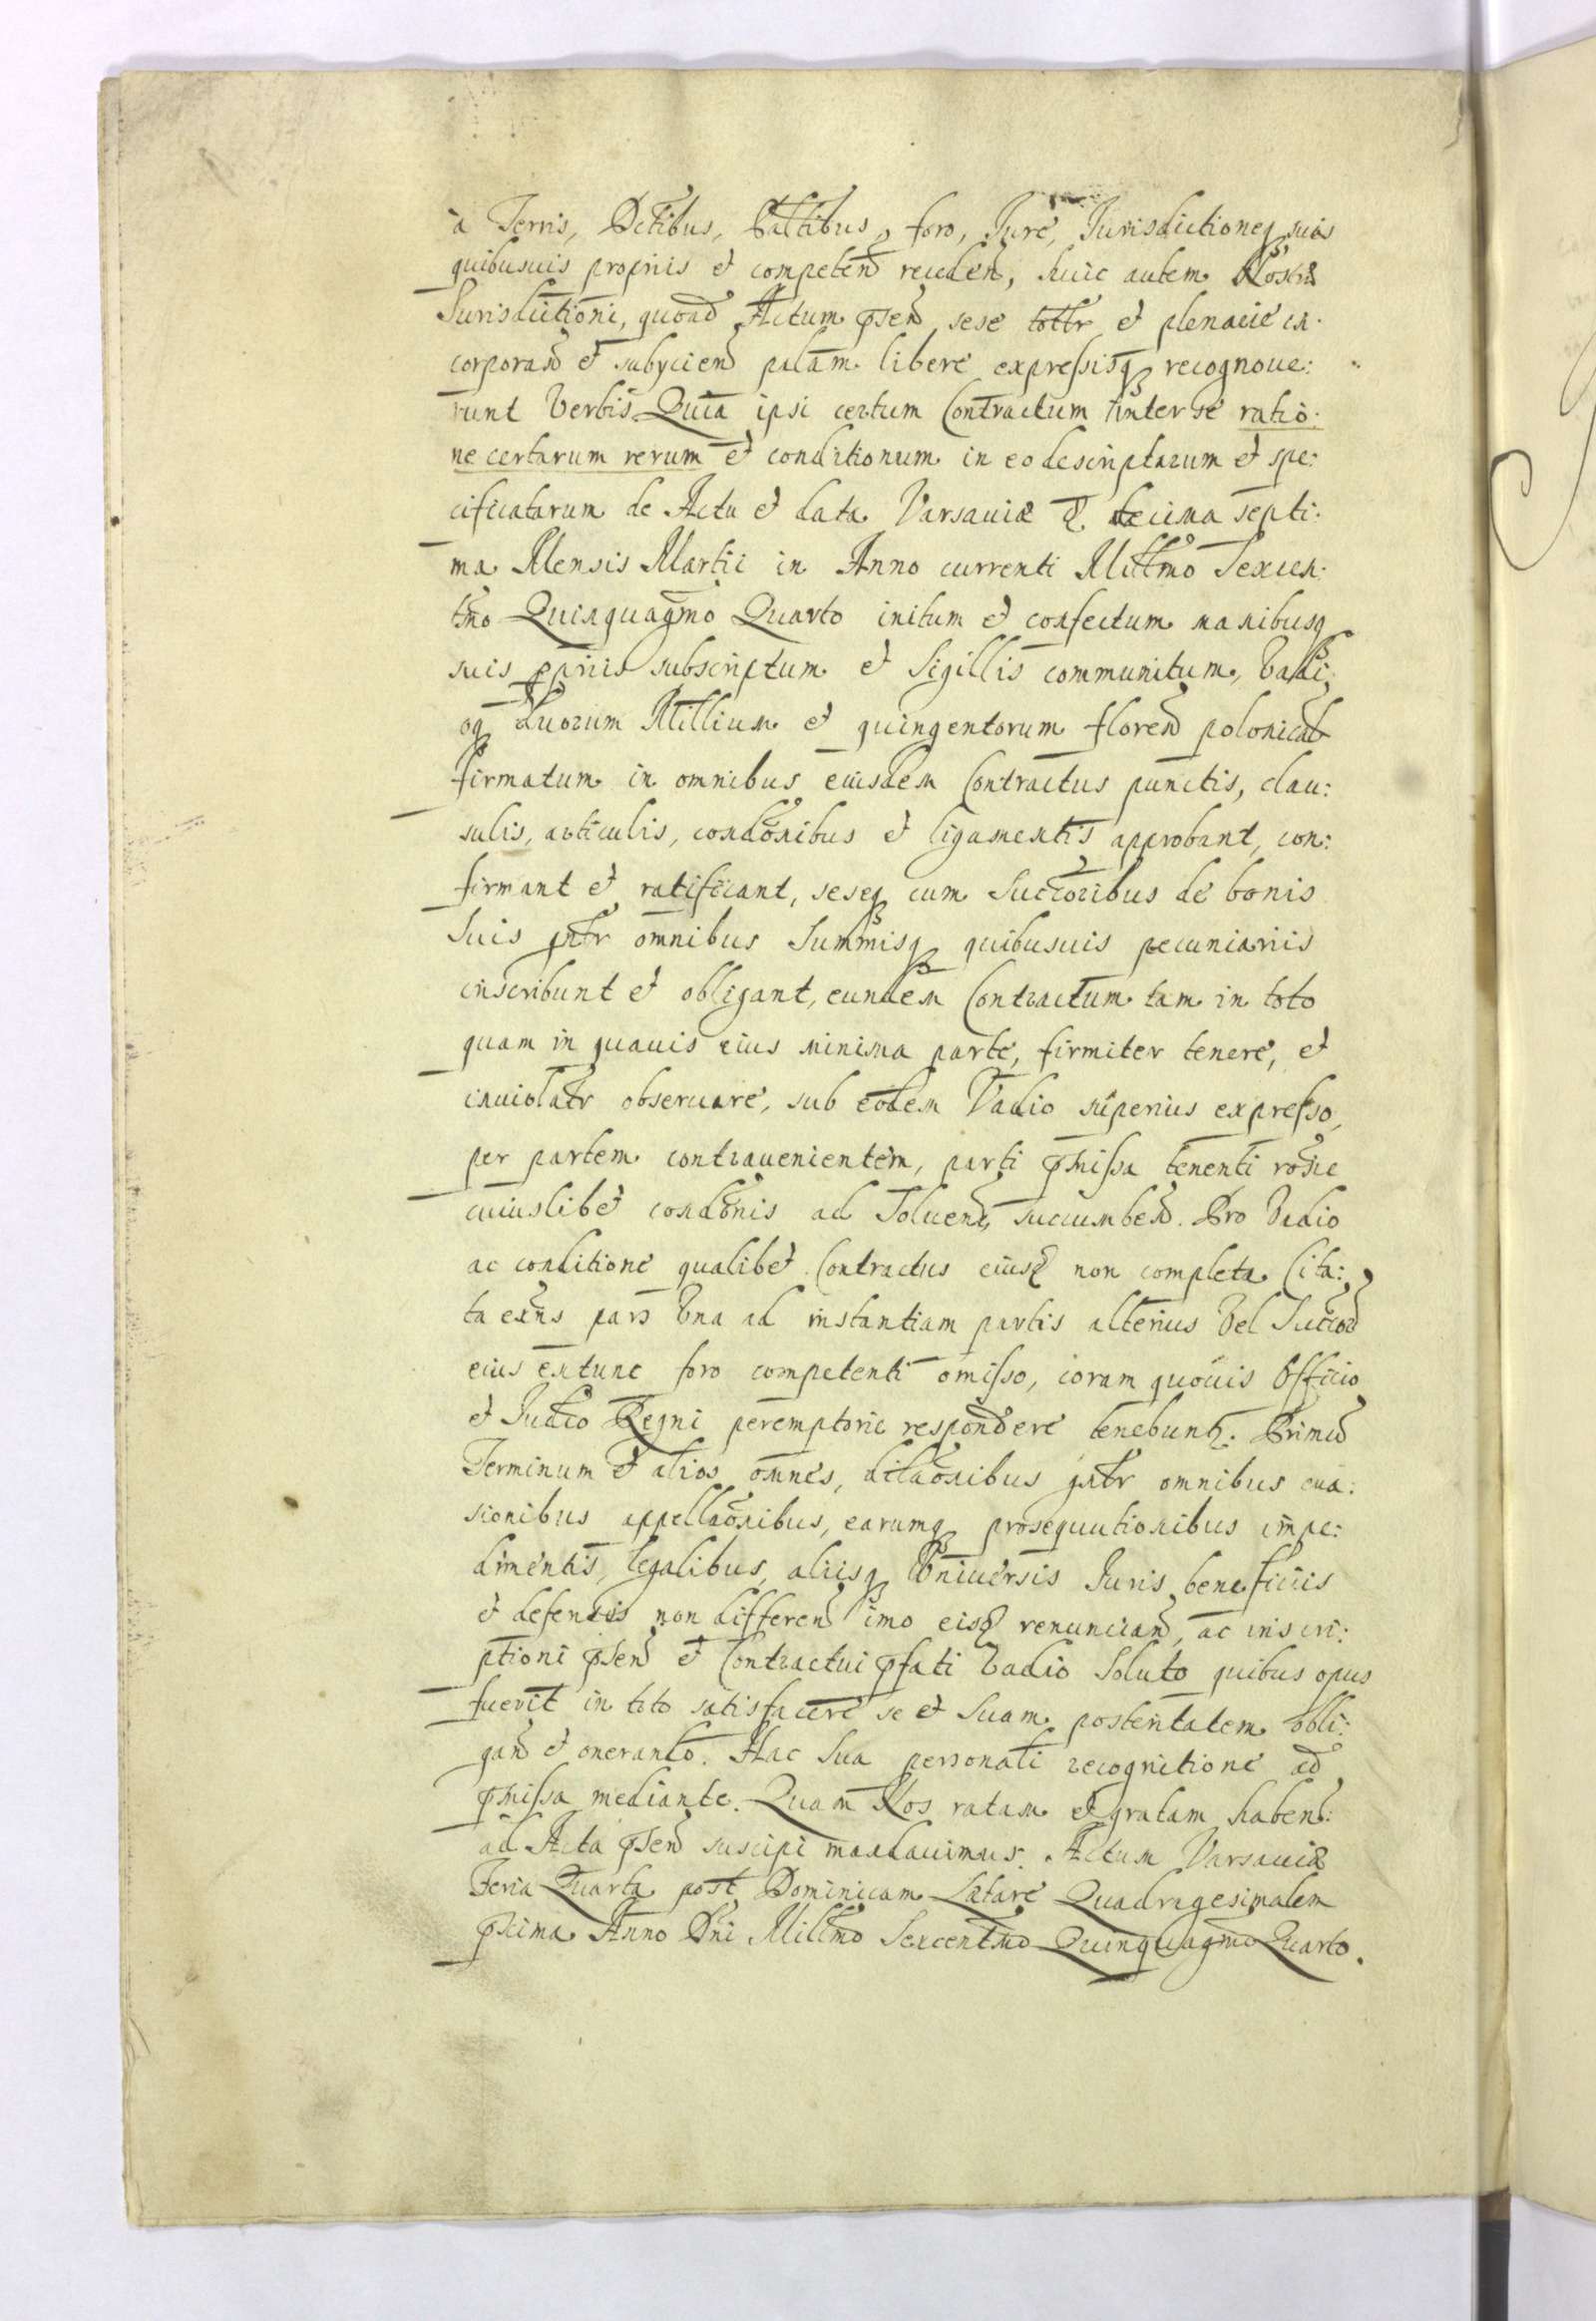 à Terris, Dctibus, Pałtibus, foro, Jure, Jurisdictioneq suis
quibusuis propriis et competen receden, huic autem Nostræ
Jurisdictioni, quoad Actum pñsen sese tottr et plenarie in:
corporan et subycien palam libere expressisq recognoue:
runt Verbis Quia ipsi certum Contractum inter se ratio:
ne certarum rerum et conditionum in eo descriptarum et spe:
cificatarum de Actu et data Varsauiæ d. decima septi:
ma Mensis Martii in Anno currenti Millmo Sexcen:
tmo Quinquagmo Quarto initum et confectum manibusq
suis ppriis subscriptum et Sigillis communitum, Vadi:
oq duorum Millium et quingentorum floren polonical
firmatum in omnibus eiusdem Contractus punctis, clau:
sulis, articulis, condonibus et ligamentis approbant, con:
firmant et ratificant, seseq cum Succoribus de bonis
Suis gntr omnibus Summisq quibusuis pecuniariis
inscribunt et obligant, eundem Contractum tam in toto
quam in quauis eius minima parte, firmiter tenere, et
inuiolatr obseruare, sub eodem Vadio superius expresso,
per partem contrauenientem, parti pmissa tenenti rone
cuiuslibet condonis ad Soluend succumben. Pro Vadio
ac conditione qualibet Contractus eiusd non completa Cita:
ta exns pars Una ad instantiam partis alterius Vel Succor
eius extunc foro competenti omisso, coram quouis Officio
et Judtio Regni peremptorie respondere tenebunt. Primu
Terminum et alios omnes, dilaonibus gntr omnibus eua:
sionibus appellaonibus, earumq prosequutionibus impe:
dimentis, legalibus, aliisq Vniuersis Juris beneficiis
et defensis non differen imo eisd renuncian, ac inscri:
ptioni pñsen et Contractui pfati Vadio Soluto quibus opus
fuerit in toto satisfacere se et Suam posteritatem obli:
gan et onerando. Hac Sua personali recognitione ad
pmissa mediante. Quam Nos ratam et gratam haben:
ad Acta pñsen suscipi mandauimus. Actum Varsauiæ
Feria Quarta post Dominicam Lætare Quadragesimalem
pxima Anno Dni Millmo Sexcentmo Quinquagmo Quarto.